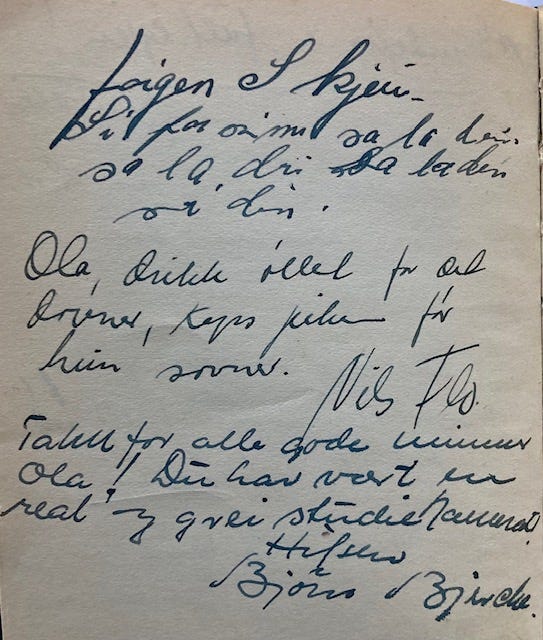 Jørgen Skjeie
sa la din
sa la, dri sa laden
sa din.
Ola, drikk øllet før det
dovner, kyss piken før
hun sovner. Nils Flo.
Takk for alle gode minner
Ola! Du har vært en
real og grei studiekamerat.
Hilsen
Bjørn Bjercke.